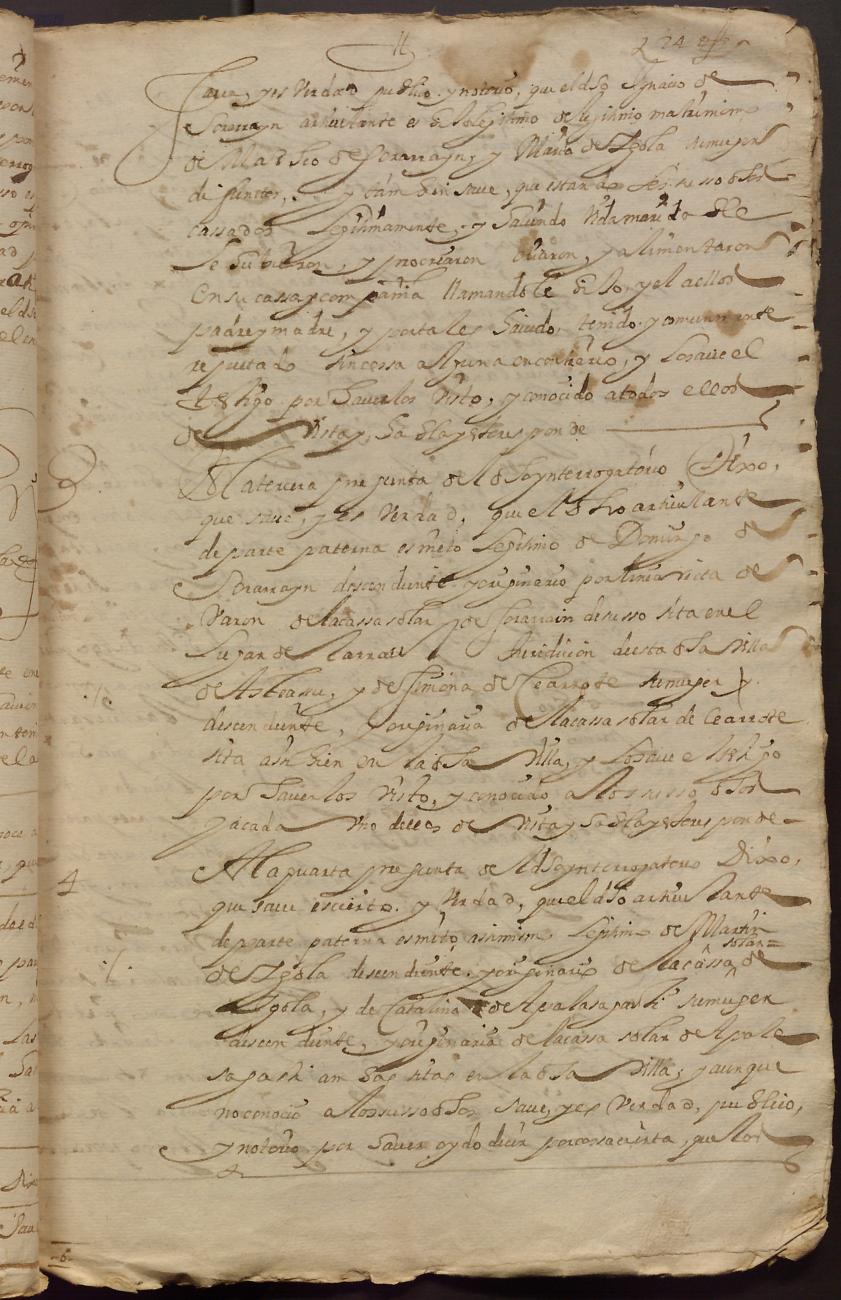 11 224
saue, y es Verdad publico, y notorio, que el dho Ygnacio de
Sorarrayn articulante es hijo lexitimo de lexitimo matrimonio
de Matheo de Sorarrayn, y Maria de Ygola su muger
difuntos, y tambien saue, que estando los susso dhos
cassados lexitimamente, y haciendo Vida maridable
le hubieron, y procrearon criaron, y alimentaron
en su cassa y compañia llamandole hijo, y el a ellos
padre y madre, y por tales hauido, tenido, y comunmente
reputado sin cossa alguna en contrario, y lo saue el
testigo por hauerlos Visto, y conocido a todos ellos
de Vista y habla y esto responde
3 A la tercera pregunta del dho ynterrogatorio Dixo,
que saue, y es Verdad, que el dho articulante
de parte paterna es nieto lexitimo de Domingo de
Sorarrayn descendiente y originario por linia recta de
Varon de la cassa solar de Sorarrain de susso sita en el
lugar de Larraul Juridicion de esta dha Villa
de Asteassu, y de Simona de Cearrote su muger
descendiente, y originaria de la cassa solar de Cearrote
sita assi bien en la dha Villa, y lo saue el testigo
por hauerlos Visto, y conocido a los susso dhos
y a cada Vno de ellos de Vista y habla y esto responde
4 A la quarta pregunta del dho ynterrogatorio Dixo,
que saue es cierto, y Verdad, que el dho articulante
de parte paterna es nieto assimismo lexitimo de Martin
de Ygola descendiente, y originario de la cassa solar de
Ygola, y de Catalina de Apalasagasti su muger
descendiente, y originaria de la cassa solar de Apala
sagasti ambas sitas en la dha Villa, y aunque
no conocio a los susso dhos saue, y es Verdad, publico,
y notorio por hauer oydo decir por cossa cierta, que los